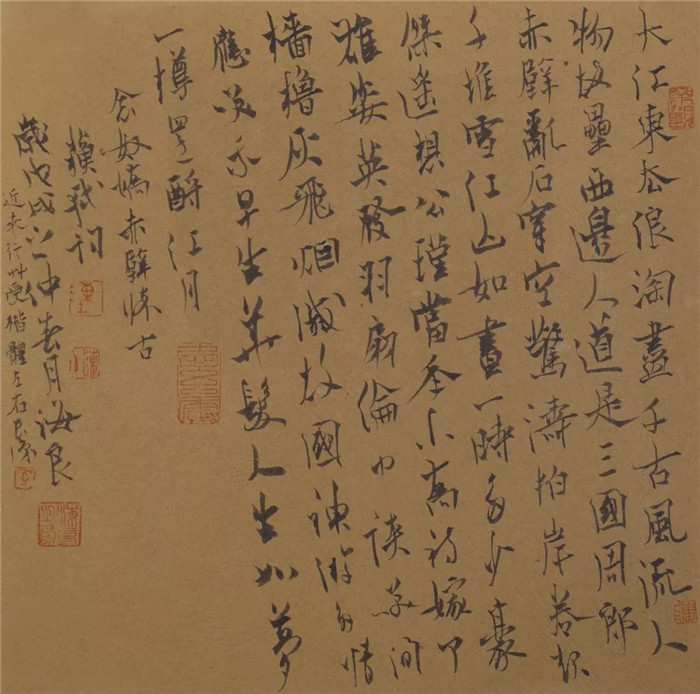 大江東去浪淘盡千古風流人
物故壘西邊人道是三國周郎
赤壁亂石穿空驚濤拍岸卷起
千堆雪江山如畫一時多少豪
傑遙想公瑾當年小喬初嫁了
雄姿英發羽扇倫巾談笑間
檣櫓灰飛烟滅故國神游多情
應笑我早生華髮人生如夢
一樽還酹江月
念奴嬌赤壁懷古
蘇軾詞
歲戊戌之仲春月海良
近来行艸受楷體左右